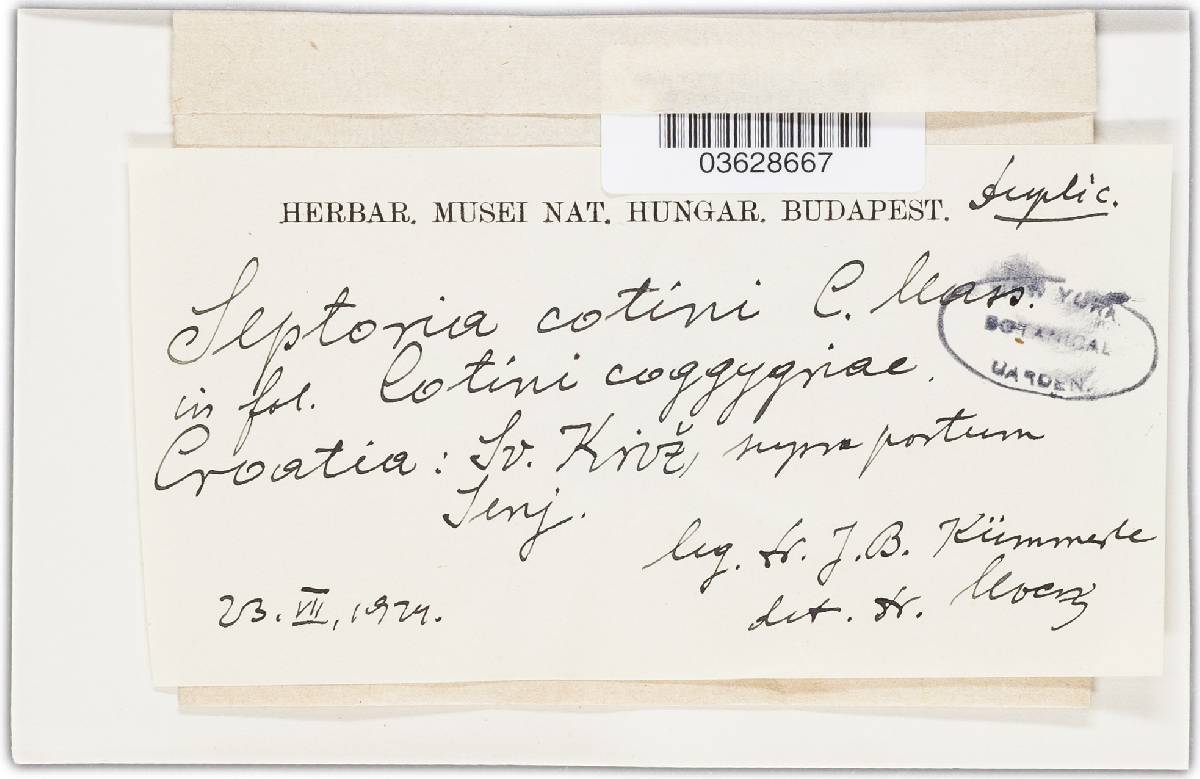 03628667
HERBAR. MUSEI NAT. HUNGAR. BUDAPEST. Duplic.
Septoria cotini C. Mass.
YORK
BOTANICAL
GARDEN.
in fol. Cotini coggygriae.
Croatia: Sv. Križ, supra portum
Senj.
leg. dr. J. B. Kümmerle
det. dr. Moesz
23. VII, 1924.